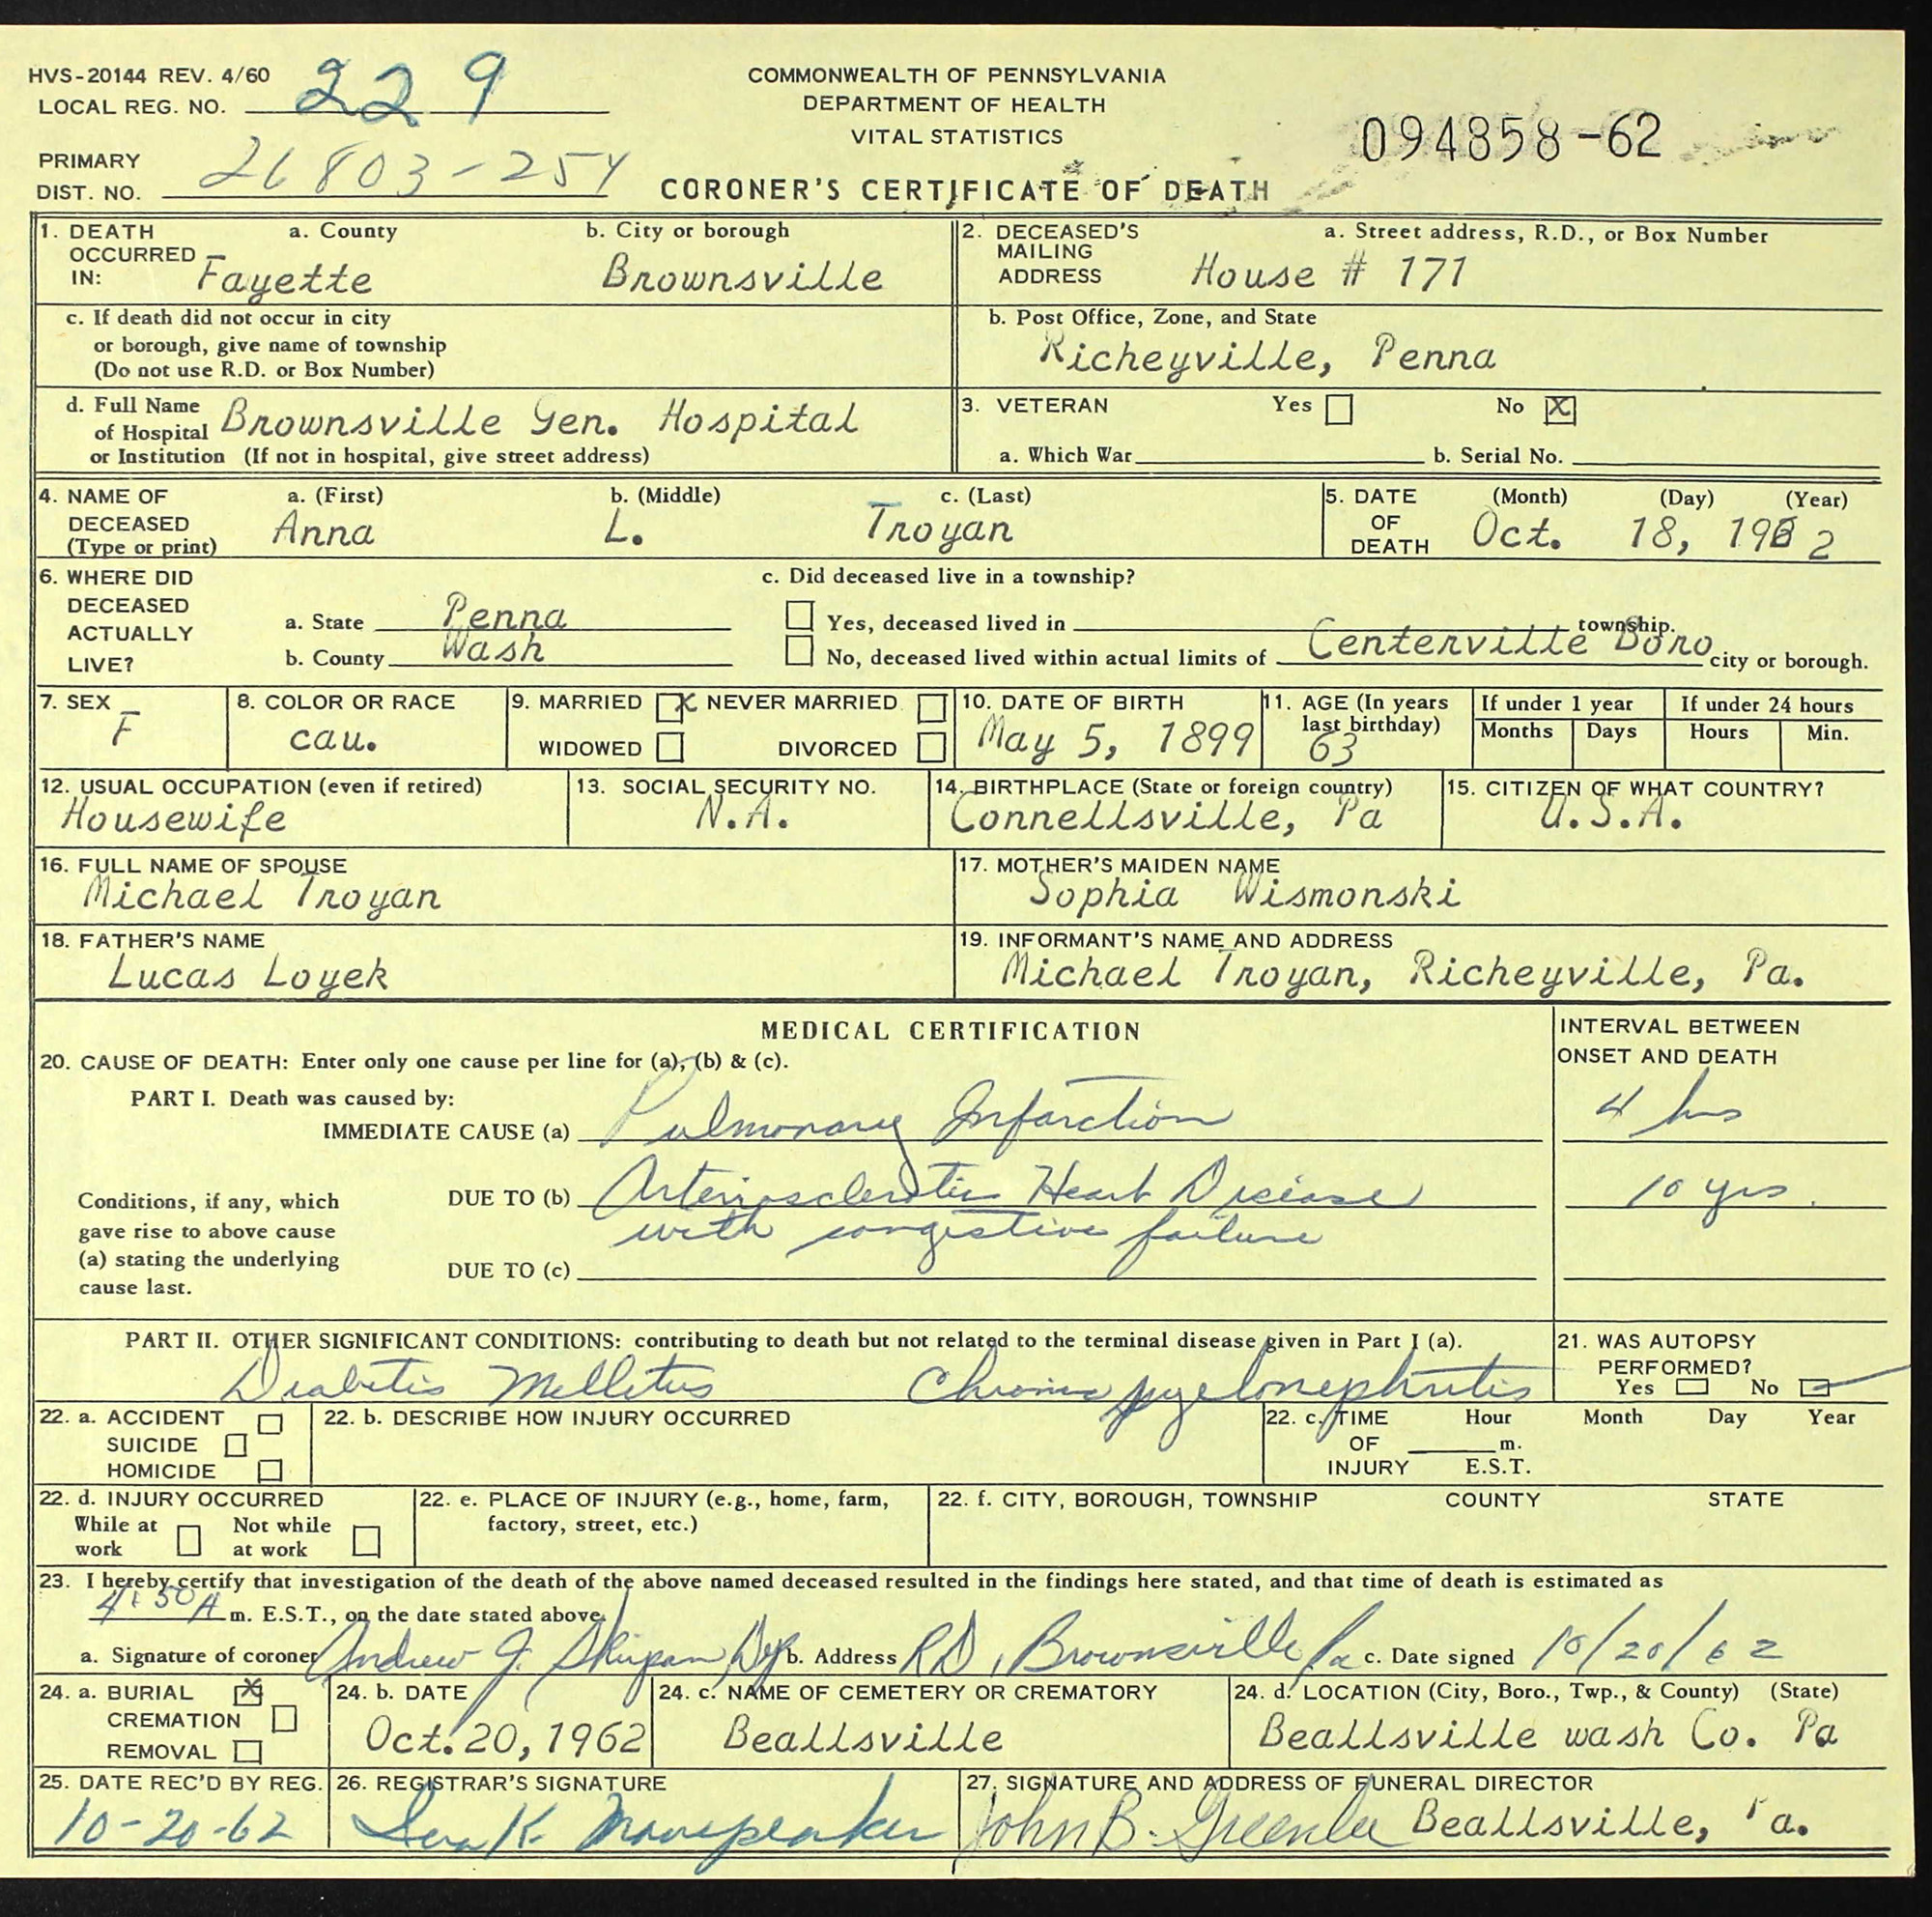 HVS-20144 REV. 4/60
LOCAL REG. NO. 229
PRIMARY
DIST. NO. 26803-254
COMMONWEALTH OF PENNSYLVANIA
DEPARTMENT OF HEALTH
VITAL STATISTICS
CORONER'S CERTIFICATE OF DEATH
094858-62
1. DEATH OCCURRED IN: a. County Fayette b. City or borough Brownsville
2. DECEASED'S MAILING ADDRESS a. Street address, R.D., or Box Number House # 171
c. If death did not occur in city
or borough, give name of township
(Do not use R.D. or Box Number)
b. Post Office, Zone, and State
Richeyville, Penna
d. Full Name of Hospital Brownsville Gen. Hospital
or Institution (If not in hospital, give street address)
3. VETERAN Yes No X
a. Which War b. Serial No.
4. NAME OF DECEASED (Type or print) a. (First) Anna b. (Middle) L. c. (Last) Troyan
5. DATE OF DEATH (Month) (Day) (Year) Oct. 18, 1962
6. WHERE DID DECEASED ACTUALLY LIVE?
a. State Penna
b. County Wash
c. Did deceased live in a township?
Yes, deceased lived in township.
No, deceased lived within actual limits of Centerville Boro city or borough.
7. SEX F
8. COLOR OR RACE cau.
9. MARRIED X NEVER MARRIED
WIDOWED DIVORCED
10. DATE OF BIRTH May 5, 1899
11. AGE (In years last birthday) 63
If under 1 year Months Days
If under 24 hours Hours Min.
12. USUAL OCCUPATION (even if retired) Housewife
13. SOCIAL SECURITY NO. N.A.
14. BIRTHPLACE (State or foreign country) Connellsville, Pa
15. CITIZEN OF WHAT COUNTRY? U.S.A.
16. FULL NAME OF SPOUSE Michael Troyan
17. MOTHER'S MAIDEN NAME Sophia Wismonski
18. FATHER'S NAME Lucas Loyek
19. INFORMANT'S NAME AND ADDRESS Michael Troyan, Richeyville, Pa.
MEDICAL CERTIFICATION
INTERVAL BETWEEN ONSET AND DEATH
20. CAUSE OF DEATH: Enter only one cause per line for (a), (b) & (c).
PART I. Death was caused by:
IMMEDIATE CAUSE (a) Pulmonary Infarction 4 hrs
Conditions, if any, which
gave rise to above cause
(a) stating the underlying
cause last.
DUE TO (b) Arteriosclerotic Heart Disease 10 yrs.
with congestive failure
DUE TO (c)
PART II. OTHER SIGNIFICANT CONDITIONS: contributing to death but not related to the terminal disease given in Part I (a).
Diabetis Mellitus Chronic pyelonephritis
21. WAS AUTOPSY PERFORMED?
Yes No
22. a. ACCIDENT
SUICIDE
HOMICIDE
22. b. DESCRIBE HOW INJURY OCCURRED
22. c. TIME OF INJURY Hour m. E.S.T. Month Day Year
22. d. INJURY OCCURRED
While at work Not while at work
22. e. PLACE OF INJURY (e.g., home, farm,
factory, street, etc.)
22. f. CITY, BOROUGH, TOWNSHIP COUNTY STATE
23. I hereby certify that investigation of the death of the above named deceased resulted in the findings here stated, and that time of death is estimated as
4:50 A m. E.S.T., on the date stated above.
a. Signature of coroner Andrew J. Dep b. Address RD, Brownsville Pa c. Date signed 10/20/62
24. a. BURIAL X
CREMATION
REMOVAL
24. b. DATE Oct. 20, 1962
24. c. NAME OF CEMETERY OR CREMATORY Beallsville
24. d. LOCATION (City, Boro., Twp., & County) (State) Beallsville wash Co. Pa
25. DATE REC'D BY REG. 10-20-62
26. REGISTRAR'S SIGNATURE
27. SIGNATURE AND ADDRESS OF FUNERAL DIRECTOR John B. Greenlee Beallsville, Pa.